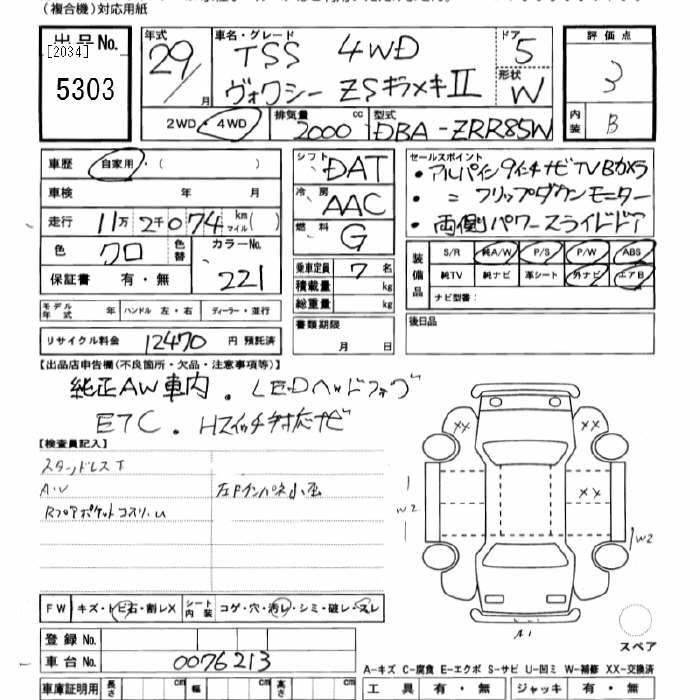 (複合機)対応用紙
出品No. [2034] 5303
年式 29/ 月
車名・グレード TSS 4WD
ヴォクシー ZSキラメキII
ドア 5
形状 W
評価点 3
内装 B
2WD・4WD 排気量 2000 cc 型式 DBA-ZRR85W
車歴 自家用・( )
車検 年 月
走行 11万 2千074 km マイル( )
色 クロ 色替 カラーNo. 221
保証書 有・無
モデル年式 年 ハンドル 左・右 ディーラー・並行
リサイクル料金 12470 円 預託済
シフト DAT
冷房 AAC
燃料 G
乗車定員 7 名
積載量 kg
総重量 kg
書類期限 月 日
セールスポイント
・アルパイン9インチナビTVBカメラ
・〃 フリップダウンモニター
・両側パワースライドドア
装備品 S/R 純A/W P/S P/W ABS
純TV 純ナビ 革シート 外ナビ エアB
ナビ型番:
後日品
【出品店申告欄(不良箇所・欠品・注意事項等)】
純正AW車内。LEDヘッドフォグ
ETC。Hスイッチ対応ナビ
【検査員記入】
A・U
FW キズ・トビ石・割レX シート内装 コゲ・穴・汚レ・シミ・破レ・スレ
登録No.
車台No. 0076213
車庫証明用 長さ cm 幅 cm 高さ cm
XX
XX
W2
W2
A1
スペア
A-キズ C-腐食 E-エクボ S-サビ U-凹ミ W-補修 XX-交換済
工具 有・無 ジャッキ 有・無